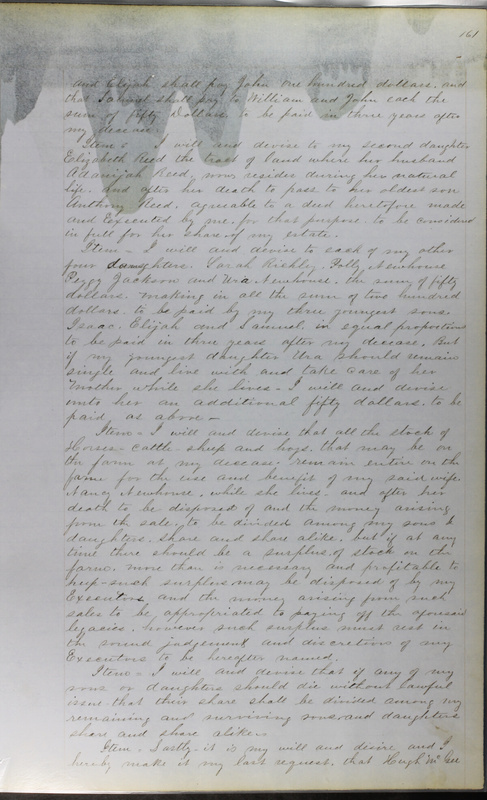 161
and Elijah shall pay John one hundred dollars. and
that Samuel shall pay to William and John each the
sum of fifty Dollars to be paid in three years after
my decease.
Item = I will and devise to my second daughter
Elizabeth Reed the tract of land where her husband
Adanijah Reed, now resides during her natural
life. and after her death to pass to her oldest son
Anthony Reed. agreeable to a deed heretofore made
and Executed by me. for that purpose. to be considered
in full for her share of my estate.
Item - I will and devise to each of my other
four daughters. Sarah Richley. Polly Newhouse
Peggy Jackson and Ura Newhouse. the sum of fifty
dollars. making in all the sum of two hundred
dollars. to be paid by my three youngest sons.
Isaac. Elijah and Samuel. in equal proportion
to be paid in three years after my decease. But
if my youngest daughter Ura should remain
single and live with and take care of her
Mother while she lives - I will and devise
unto her an additional fifty dollars. to be
paid as above -
Item - I will and devise that all the stock of
Horses - Cattle - sheep and hogs. that may be on
the farm at my decease. remain entire on the
farm for the use and benefit of my said wife
Nancy Newhouse. while she lives. and after her
death to be disposed of and the money arising
from the sale. to be divided among my sons &
daughters. share and share alike. but if at any
time there should be a surplus of stock on the
farm. more than is necessary and profitable to
keep - such surplus may be disposed of by my
Executors. and the money arising from such
sales to be appropriated to paying off the aforesaid
legacies. however such surplus must rest in
the sound judgement and discretion of my
Executors to be hereafter named.
Item = I will and devise that if any of my
sons or daughters should die without lawful
issue. that their share shall be divided among my
remaining and surviving sons and daughters
share and share alike.
Item. Lastly it is my will and desire and I
hereby make it my last request. that Hugh Mc Cee